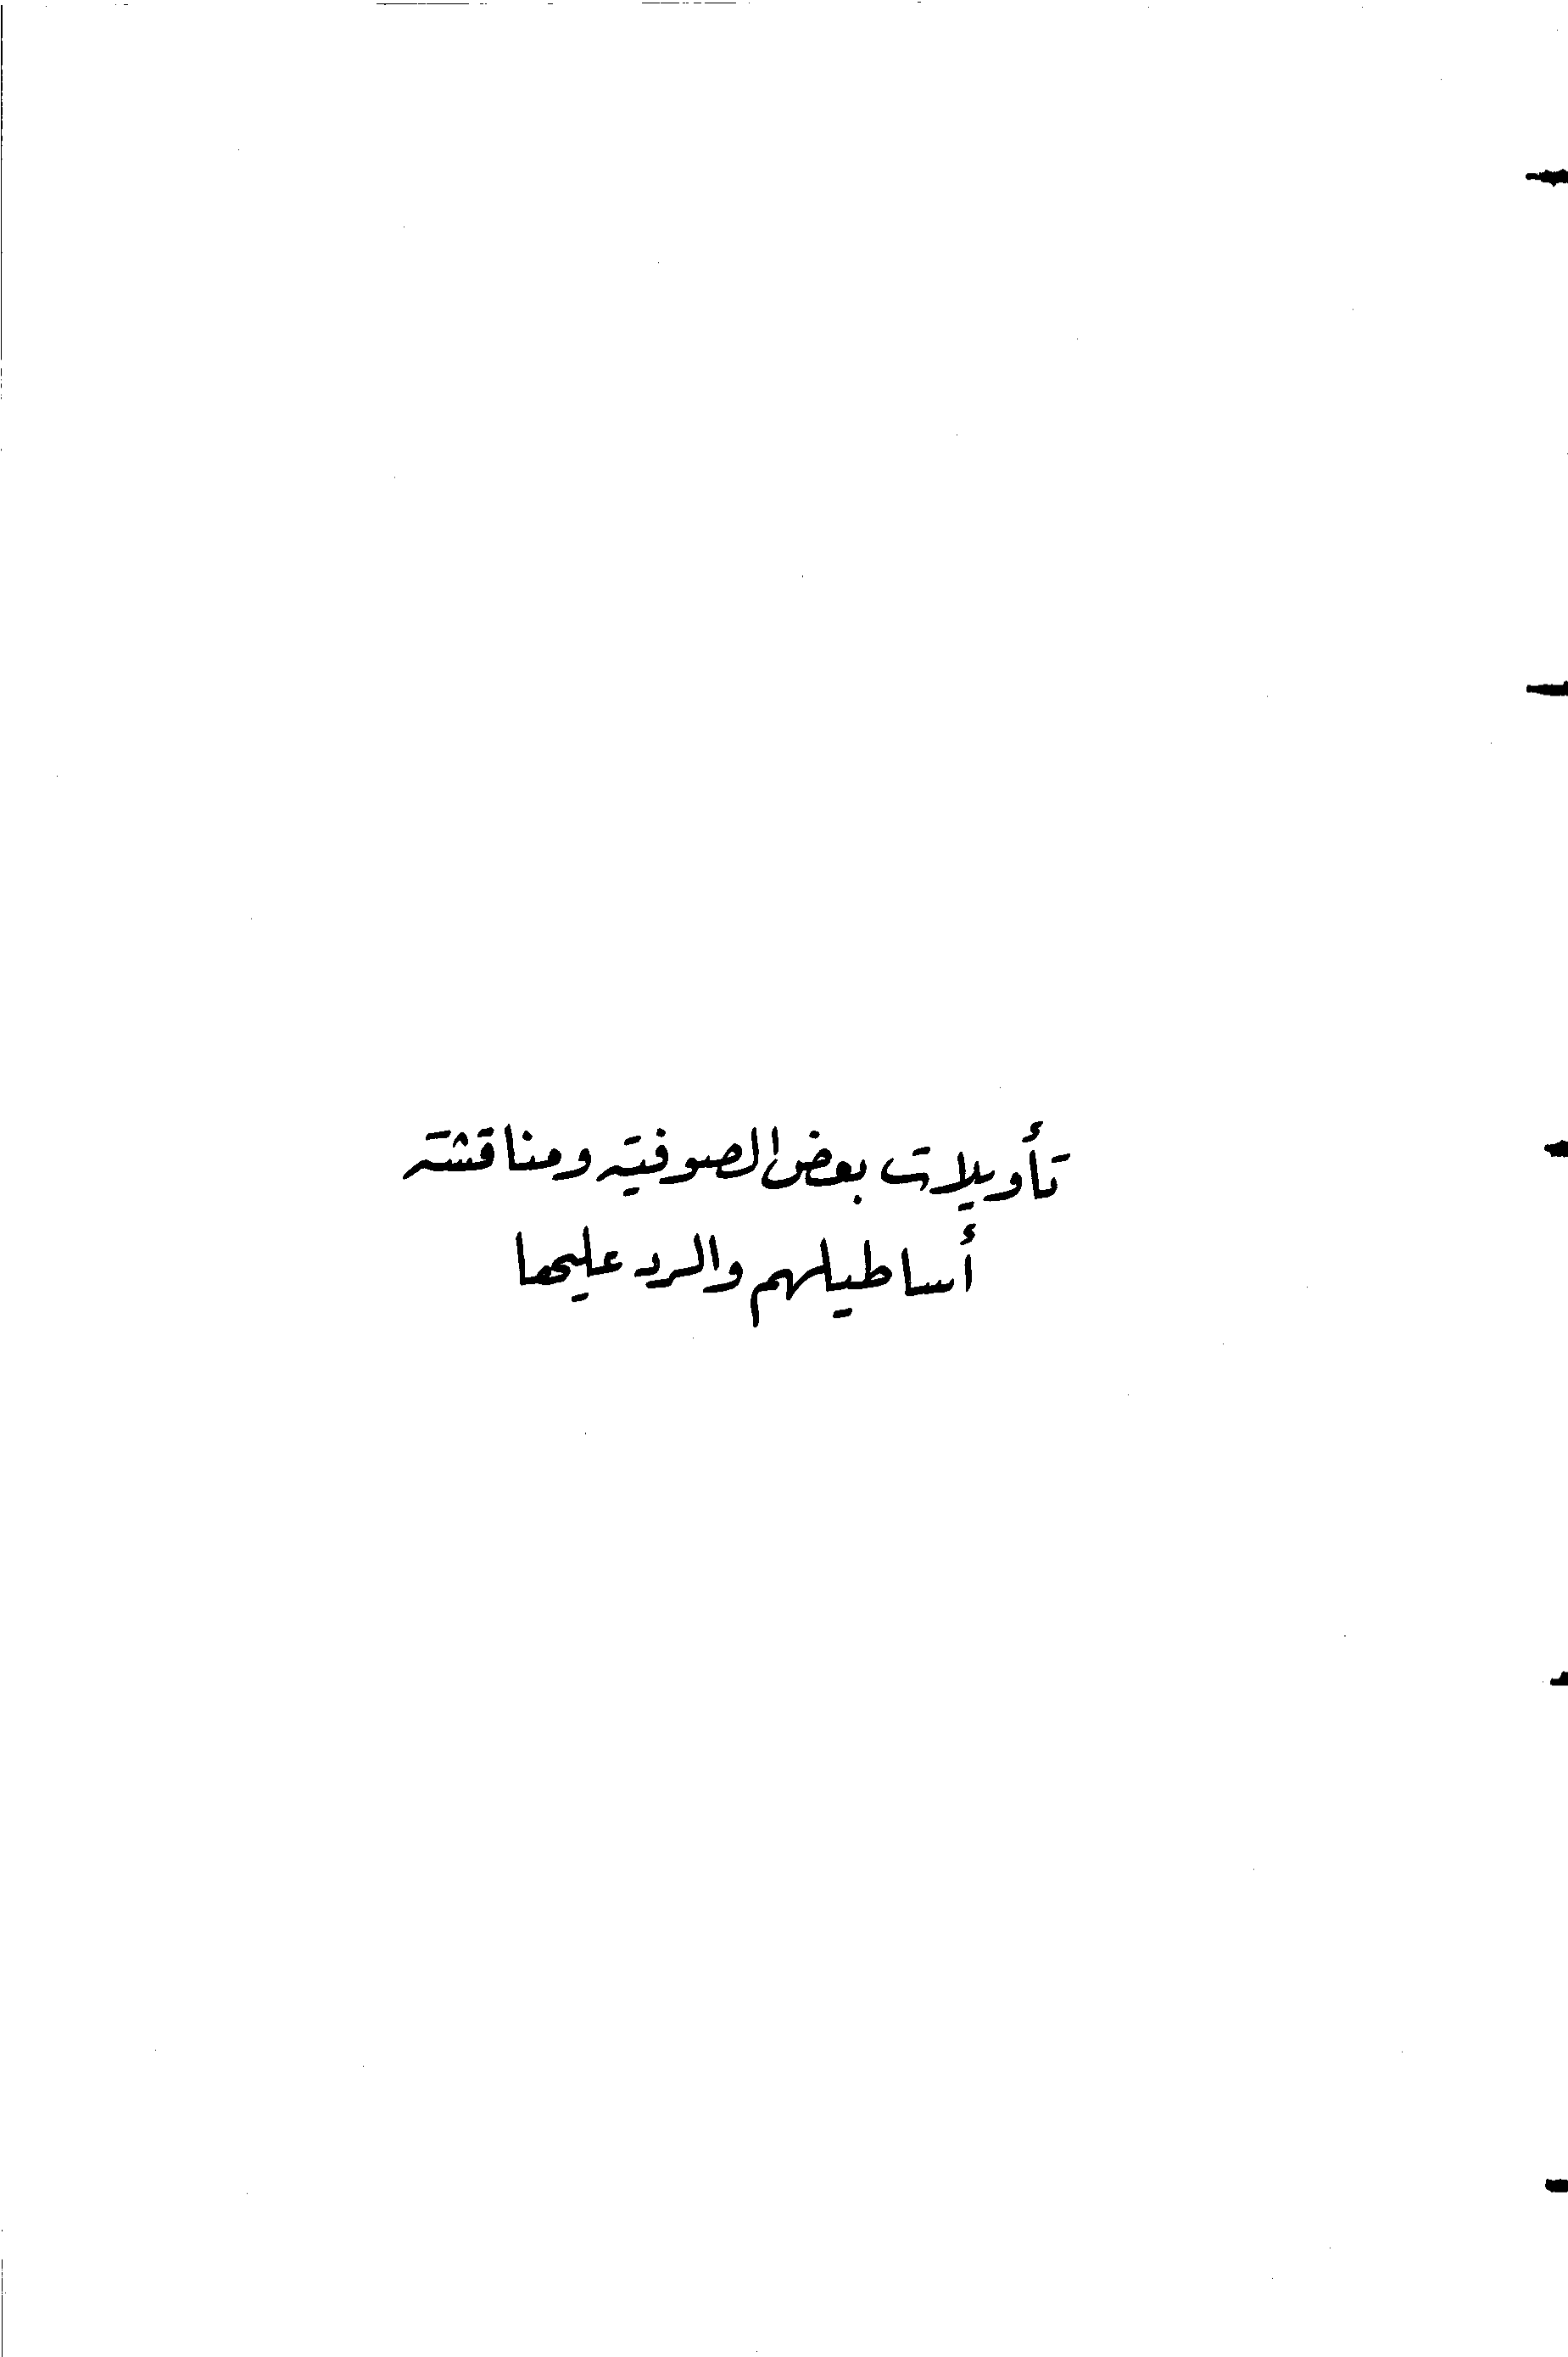 تأويلات بعض الصوفية ومناقشة
أساطيلهم والرد عليها